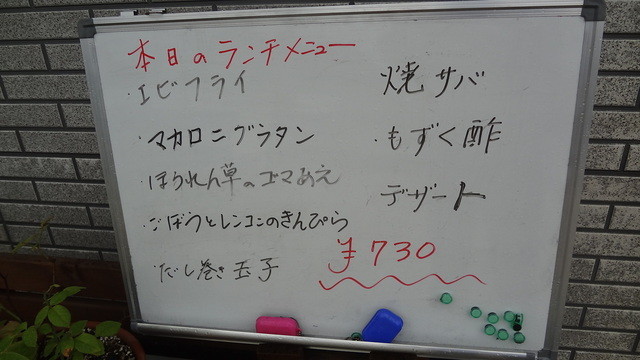 本日のランチメニュー
・エビフライ
・マカロニグラタン
・ほうれん草のゴマあえ
・ごぼうとレンコンのきんぴら
・だし巻き玉子
焼サバ
・もずく酢
デザート
¥730